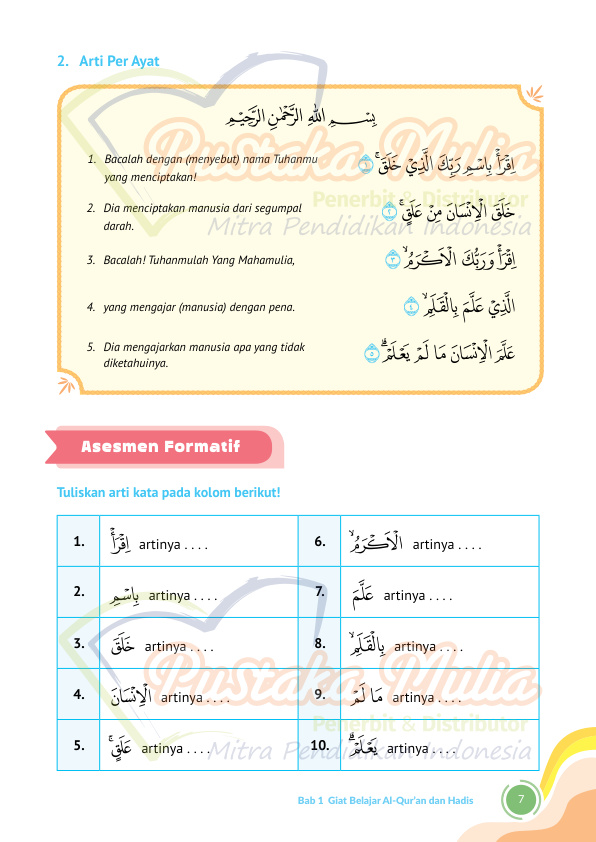 2. Arti Per Ayat
بِسْــــمِ اللّٰهِ الرَّحْمٰنِ الرَّحِيْمِ
1. Bacalah dengan (menyebut) nama Tuhanmu
yang menciptakan!
اِقْرَأْ بِاسْمِ رَبِّكَ الَّذِيْ خَلَقَۚ ١
2. Dia menciptakan manusia dari segumpal
darah.
خَلَقَ الْاِنْسَانَ مِنْ عَلَقٍۚ ٢
3. Bacalah! Tuhanmulah Yang Mahamulia,
اِقْرَأْ وَرَبُّكَ الْاَكْرَمُۙ ٣
4. yang mengajar (manusia) dengan pena.
الَّذِيْ عَلَّمَ بِالْقَلَمِۙ ٤
5. Dia mengajarkan manusia apa yang tidak
diketahuinya.
عَلَّمَ الْاِنْسَانَ مَا لَمْ يَعْلَمْۗ ٥
Pustaka Mulia
Penerbit & Distributor
Mitra Pendidikan Indonesia
Asesmen Formatif
Tuliskan arti kata pada kolom berikut!
1. اِقْرَأْ artinya . . . .
6. الْاَكْرَمُۙ artinya . . . .
2. بِاسْمِ artinya . . . .
7. عَلَّمَ artinya . . . .
3. خَلَقَ artinya . . . .
8. بِالْقَلَمِۙ artinya . . . .
4. الْاِنْسَانَ artinya . . . .
9. مَا لَمْ artinya . . . .
5. عَلَقٍۚ artinya . . . .
10. يَعْلَمْۗ artinya . . . .
Pustaka Mulia
Penerbit & Distributor
Mitra Pendidikan Indonesia
Bab 1 Giat Belajar Al-Qur'an dan Hadis 7